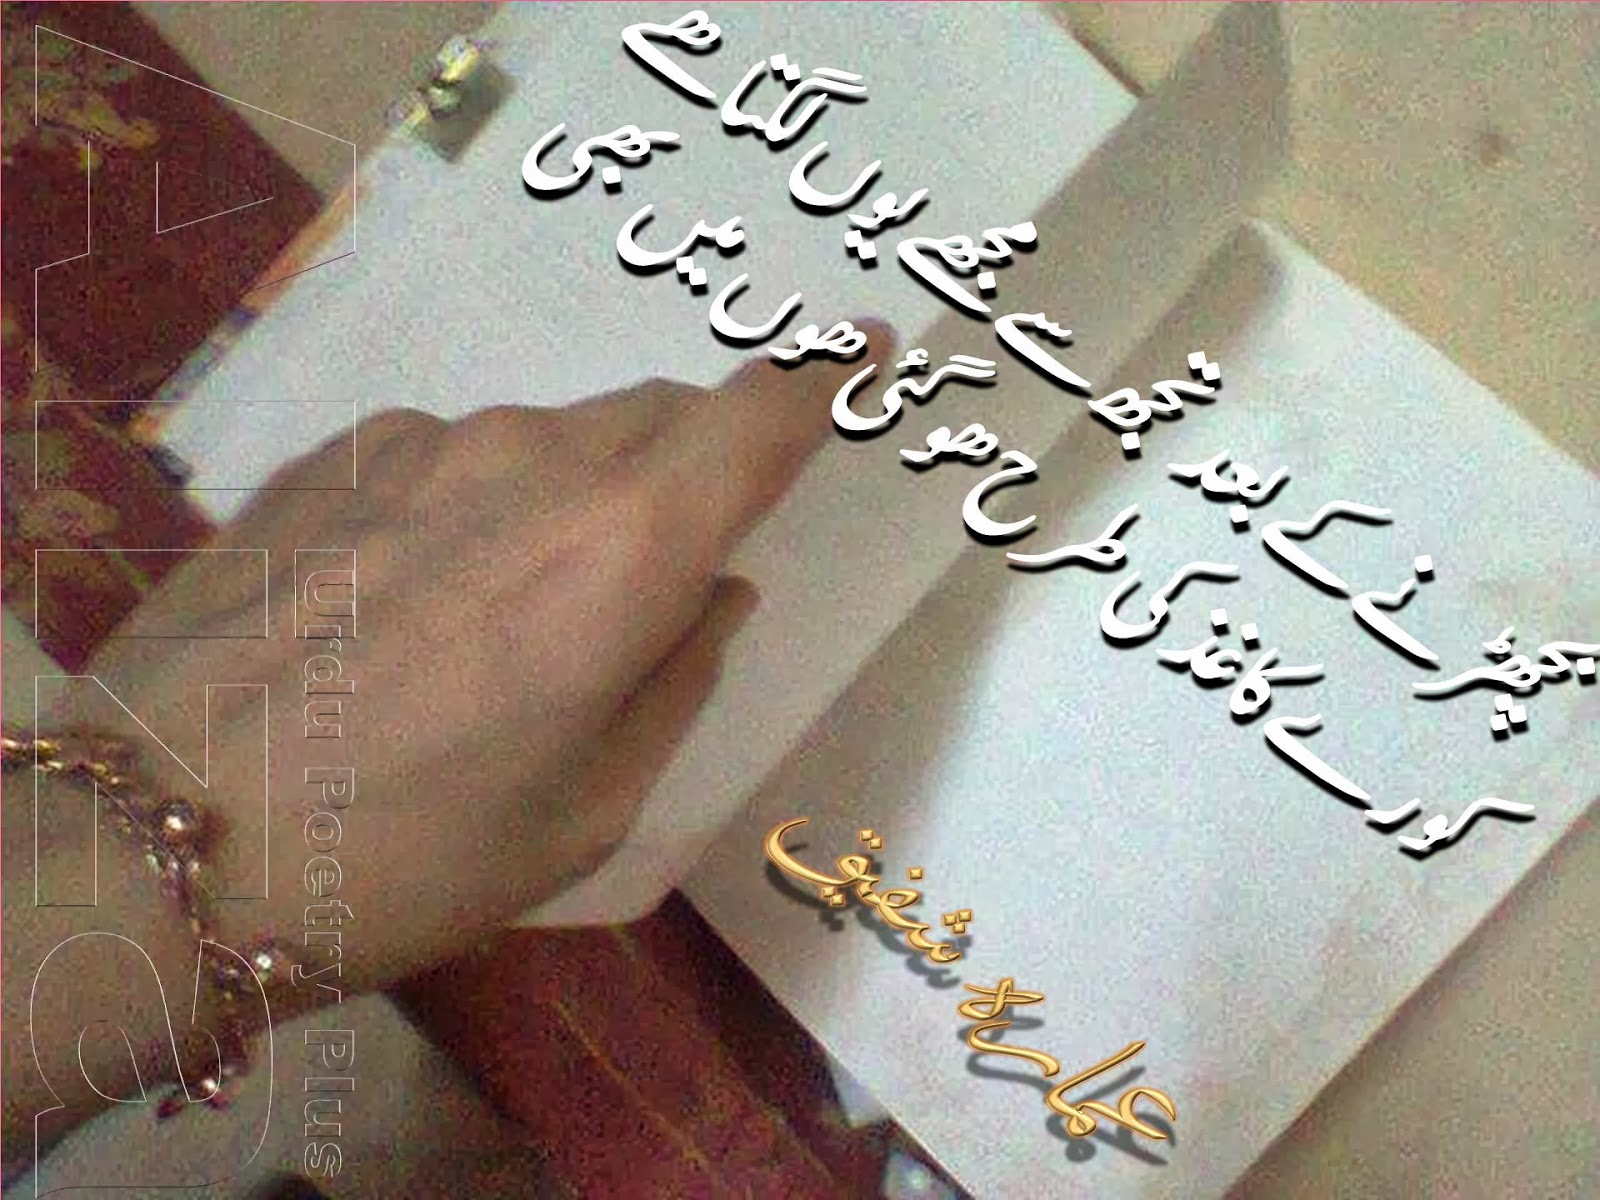 بچھڑنے کے بعد تجھ سے مجھے یوں لگتا ھے
کورے کاغذ کی طرح ھو گئی ھوں میں بھی
عمارہ شفیق
Urdu Poetry Plus